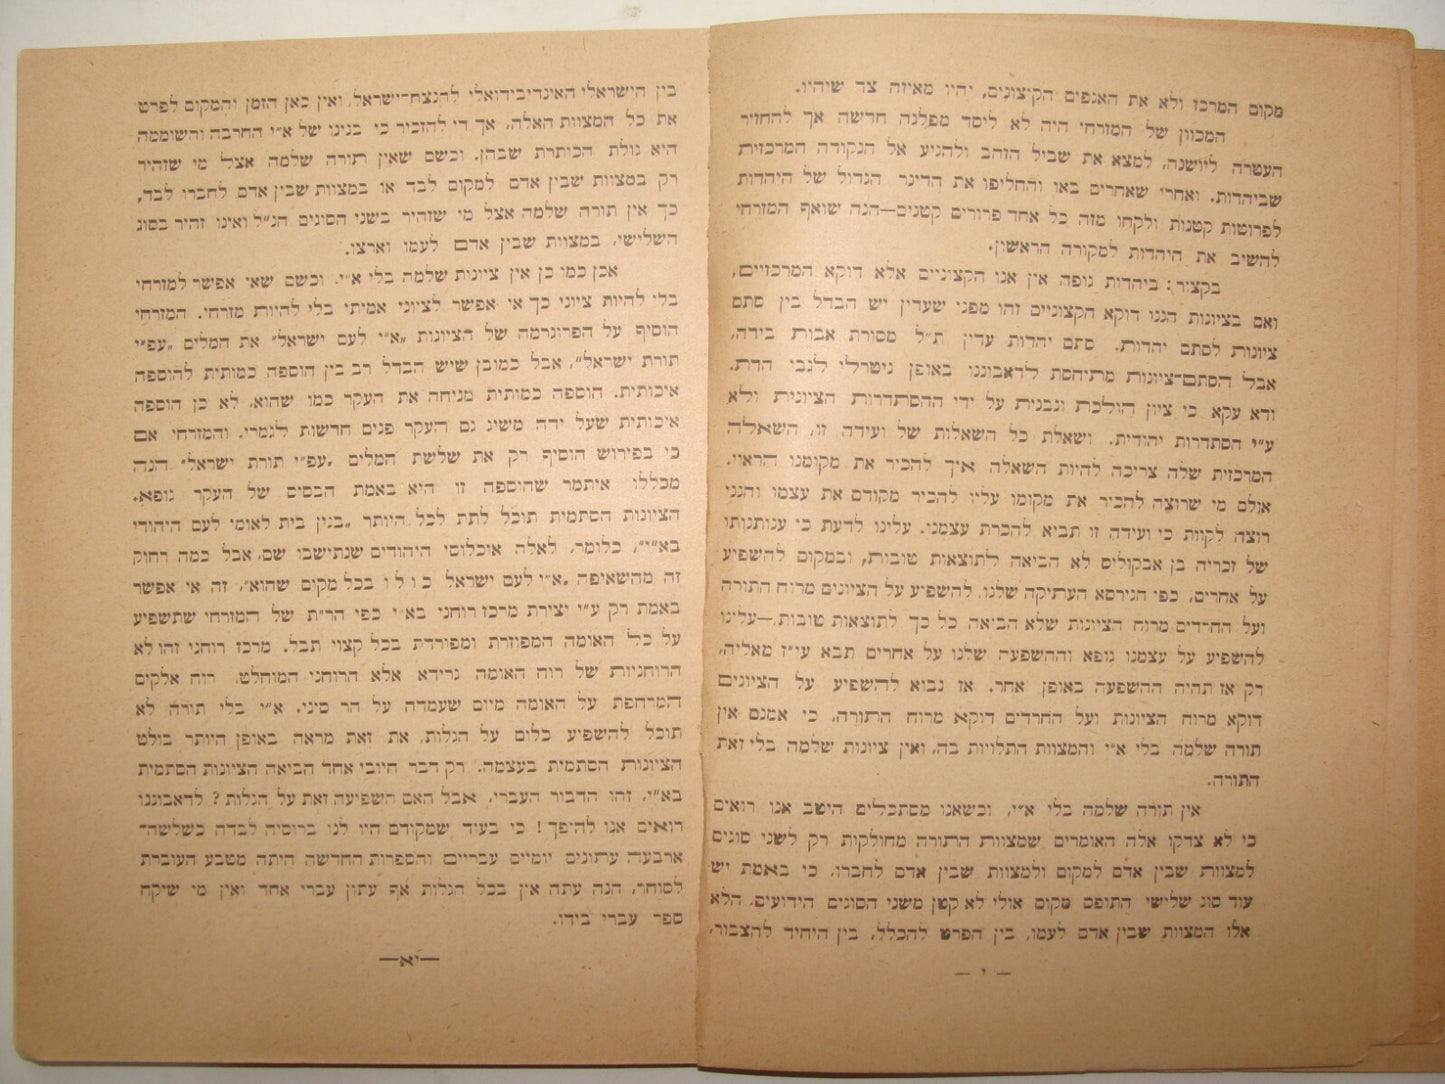 מקום המרכז ולא את האגפים הקיצונים, יהיו מאיזה צד שיהיו.
המכוון של המזרחי היה לא ליסד מפלגה חדשה אך להחזיר
העטרה ליושנה, למצא את שביל הזהב ולהגיע אל הנקודה המרכזית
שביהדות. ואחרי שאחרים באו והחליפו את הדינר הגדול של היהדות
לפרוטות קטנות ולקחו מזה כל אחד פרורים קטנים—הנה שואף המזרחי
להשיב את היהדות למקורה הראשון.
בקציר: ביהדות גופה אין אנו הקצוניים אלא דוקא המרכזיים,
ואם בציונות הננו דוקא הקצוניים זהו מפני שעדין יש הבדל בין סתם
ציונות לסתם יהדות. סתם יהדות עדין ת״ל מסורת אבות בידה,
אבל הסתם־ציונות מתיחסת לדאבוננו באופן ניטרלי לגבי הדת.
ודא עקא כי ציון הולכת ונבנית על ידי ההסתדרות הציונית ולא
ע״י הסתדרות יהודית. ושאלת כל השאלות של ועידה זו, השאלה
המרכזית שלה צריכה להיות השאלה איך להכיר את מקומנו הראוי.
אולם מי שרוצה להכיר את מקומו עליו להכיר מקודם את עצמו והנני
רוצה לקוות כי ועידה זו תביא להכרת עצמנו. עלינו לדעת כי ענותנותו
של זכריה בן אבקוליס לא הביאה לתוצאות טובות, ובמקום להשפיע
על אחרים, כפי הגירסא העתיקה שלנו, להשפיע על הציונים מרוח התורה
ועל החרדים מרוח הציונות שלא הביאה כל כך לתוצאות טובות,—עלינו
להשפיע על עצמנו גופא וההשפעה שלנו על אחרים תבא עי״ז מאליה,
רק אז תהיה ההשפעה באופן אחר. אז נבוא להשפיע על הציונים
דוקא מרוח הציונות ועל החרדים דוקא מרוח התורה, כי אמנם אין
תורה שלמה בלי א״י והמצוות התלויות בה, ואין ציונות שלמה בלי זאת
התורה.
אין תורה שלמה בלי א״י, ובשאנו מסתכלים היטב אנו רואים
כי לא צדקו אלה האומרים שמצוות התורה מחולקות רק לשני סוגים
למצוות שבין אדם למקום ולמצוות שבין אדם לחברו, כי באמת יש
עוד סוג שלישי התופס מקום אולי לא קטן משני הסוגים הידועים, הלא
אלו המצוות שבין אדם לעמו, בין הפרט להכלל, בין היחיד להצבור,
— י —
בין הישראלי האינדיבידואלי להנצח־ישראל, ואין כאן הזמן והמקום לפרט
את כל המצוות האלה, אך די להזכיר כי בנינו של א״י החרבה והשוממה
היא גולת הכותרת שבהן. וכשם שאין תורה שלמה אצל מי שזהיר
רק במצוות שבין אדם למקום לבד או במצוות שבין אדם לחברו לבד,
כך אין תורה שלמה אצל מי שזהיר בשני הסוגים הנ״ל ואינו זהיר בסוג
השלישי, במצוות שבין אדם לעמו וארצו.
אכן כמו כן אין ציונות שלמה בלי א״י. וכשם שאי אפשר למזרחי
בלי להיות ציוני כך אי אפשר לציוני אמיתי בלי להיות מזרחי. המזרחי
הוסיף על הפרוגרמה של הציונות „א״י לעם ישראל״ את המלים „עפ״י
תורת ישראל״, אבל כמובן שיש הבדל רב בין הוספה כמותית להוספה
איכותית. הוספה כמותית מניחה את העקר כמו שהוא, לא כן הוספה
איכותית שעל ידה משיג גם העקר פנים חדשות לגמרי. והמזרחי אם
כי בפירוש הוסיף רק את שלשת המלים „עפ״י תורת ישראל״ הנה
מכללו איתמר שהוספה זו היא באמת הבסיס של העקר גופא.
הציונות הסתמית תוכל לתת לכל היותר „בנין בית לאומי לעם היהודי
בא״י״, כלומר, לאלה איכלוסי היהודים שנתישבו שם, אבל כמה רחוק
זה מהשאיפה „א״י לעם ישראל כולו בכל מקום שהוא״, זה אי אפשר
באמת רק ע״י יצירת מרכז רוחני בא״י כפי הר״ת של המזרחי שתשפיע
על כל האומה המפוזרת ומפורדת בכל קצוי תבל. מרכז רוחני זהו לא
הרוחניות של רוח האומה גרידא אלא הרוחני המוחלט, רוח אלקים
המרחפת על האומה מיום שעמדה על הר סיני. א״י בלי תורה לא
תוכל להשפיע כלום על הגלות, את זאת מראה באופן היותר בולט
הציונות הסתמית בעצמה. רק דבר חיובי אחד הביאה הציונות הסתמית
בא״י, זהו הדבור העברי, אבל האם השפיעה זאת על הגלות? לדאבוננו
רואים אנו להיפך! כי בעוד שמקודם היו לנו ברוסיה לבדה כשלשה־
ארבעה עתונים יומיים עבריים והספרות החדשה היתה מטבע העוברת
לסוחר, הנה עתה אין בכל הגלות אף עתון עברי אחד ואין מי שיקח
ספר עברי בידו.
—יא—